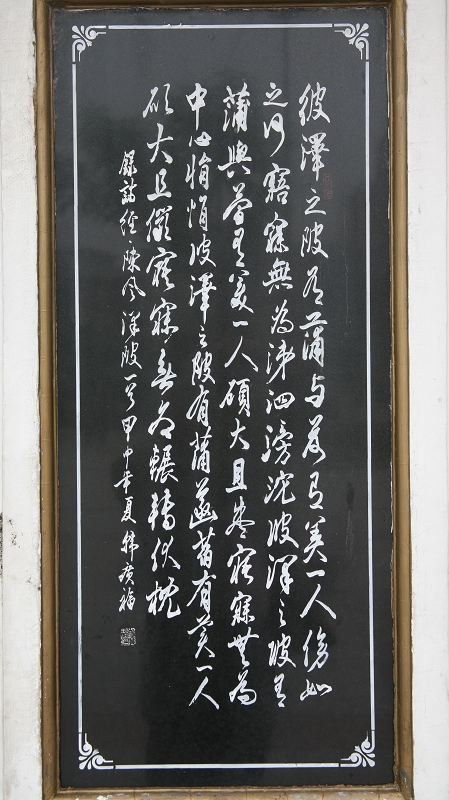 彼澤之陂有蒲与荷有美一人傷如
之何寤寐無為涕泗滂沱彼澤之陂有
蒲與蕑有美一人碩大且卷寤寐無為
中心悁悁彼澤之陂有蒲菡萏有美一人
碩大且儼寤寐無為輾轉伏枕
錄詩經·陳风澤陂一首甲申年夏韩廣福